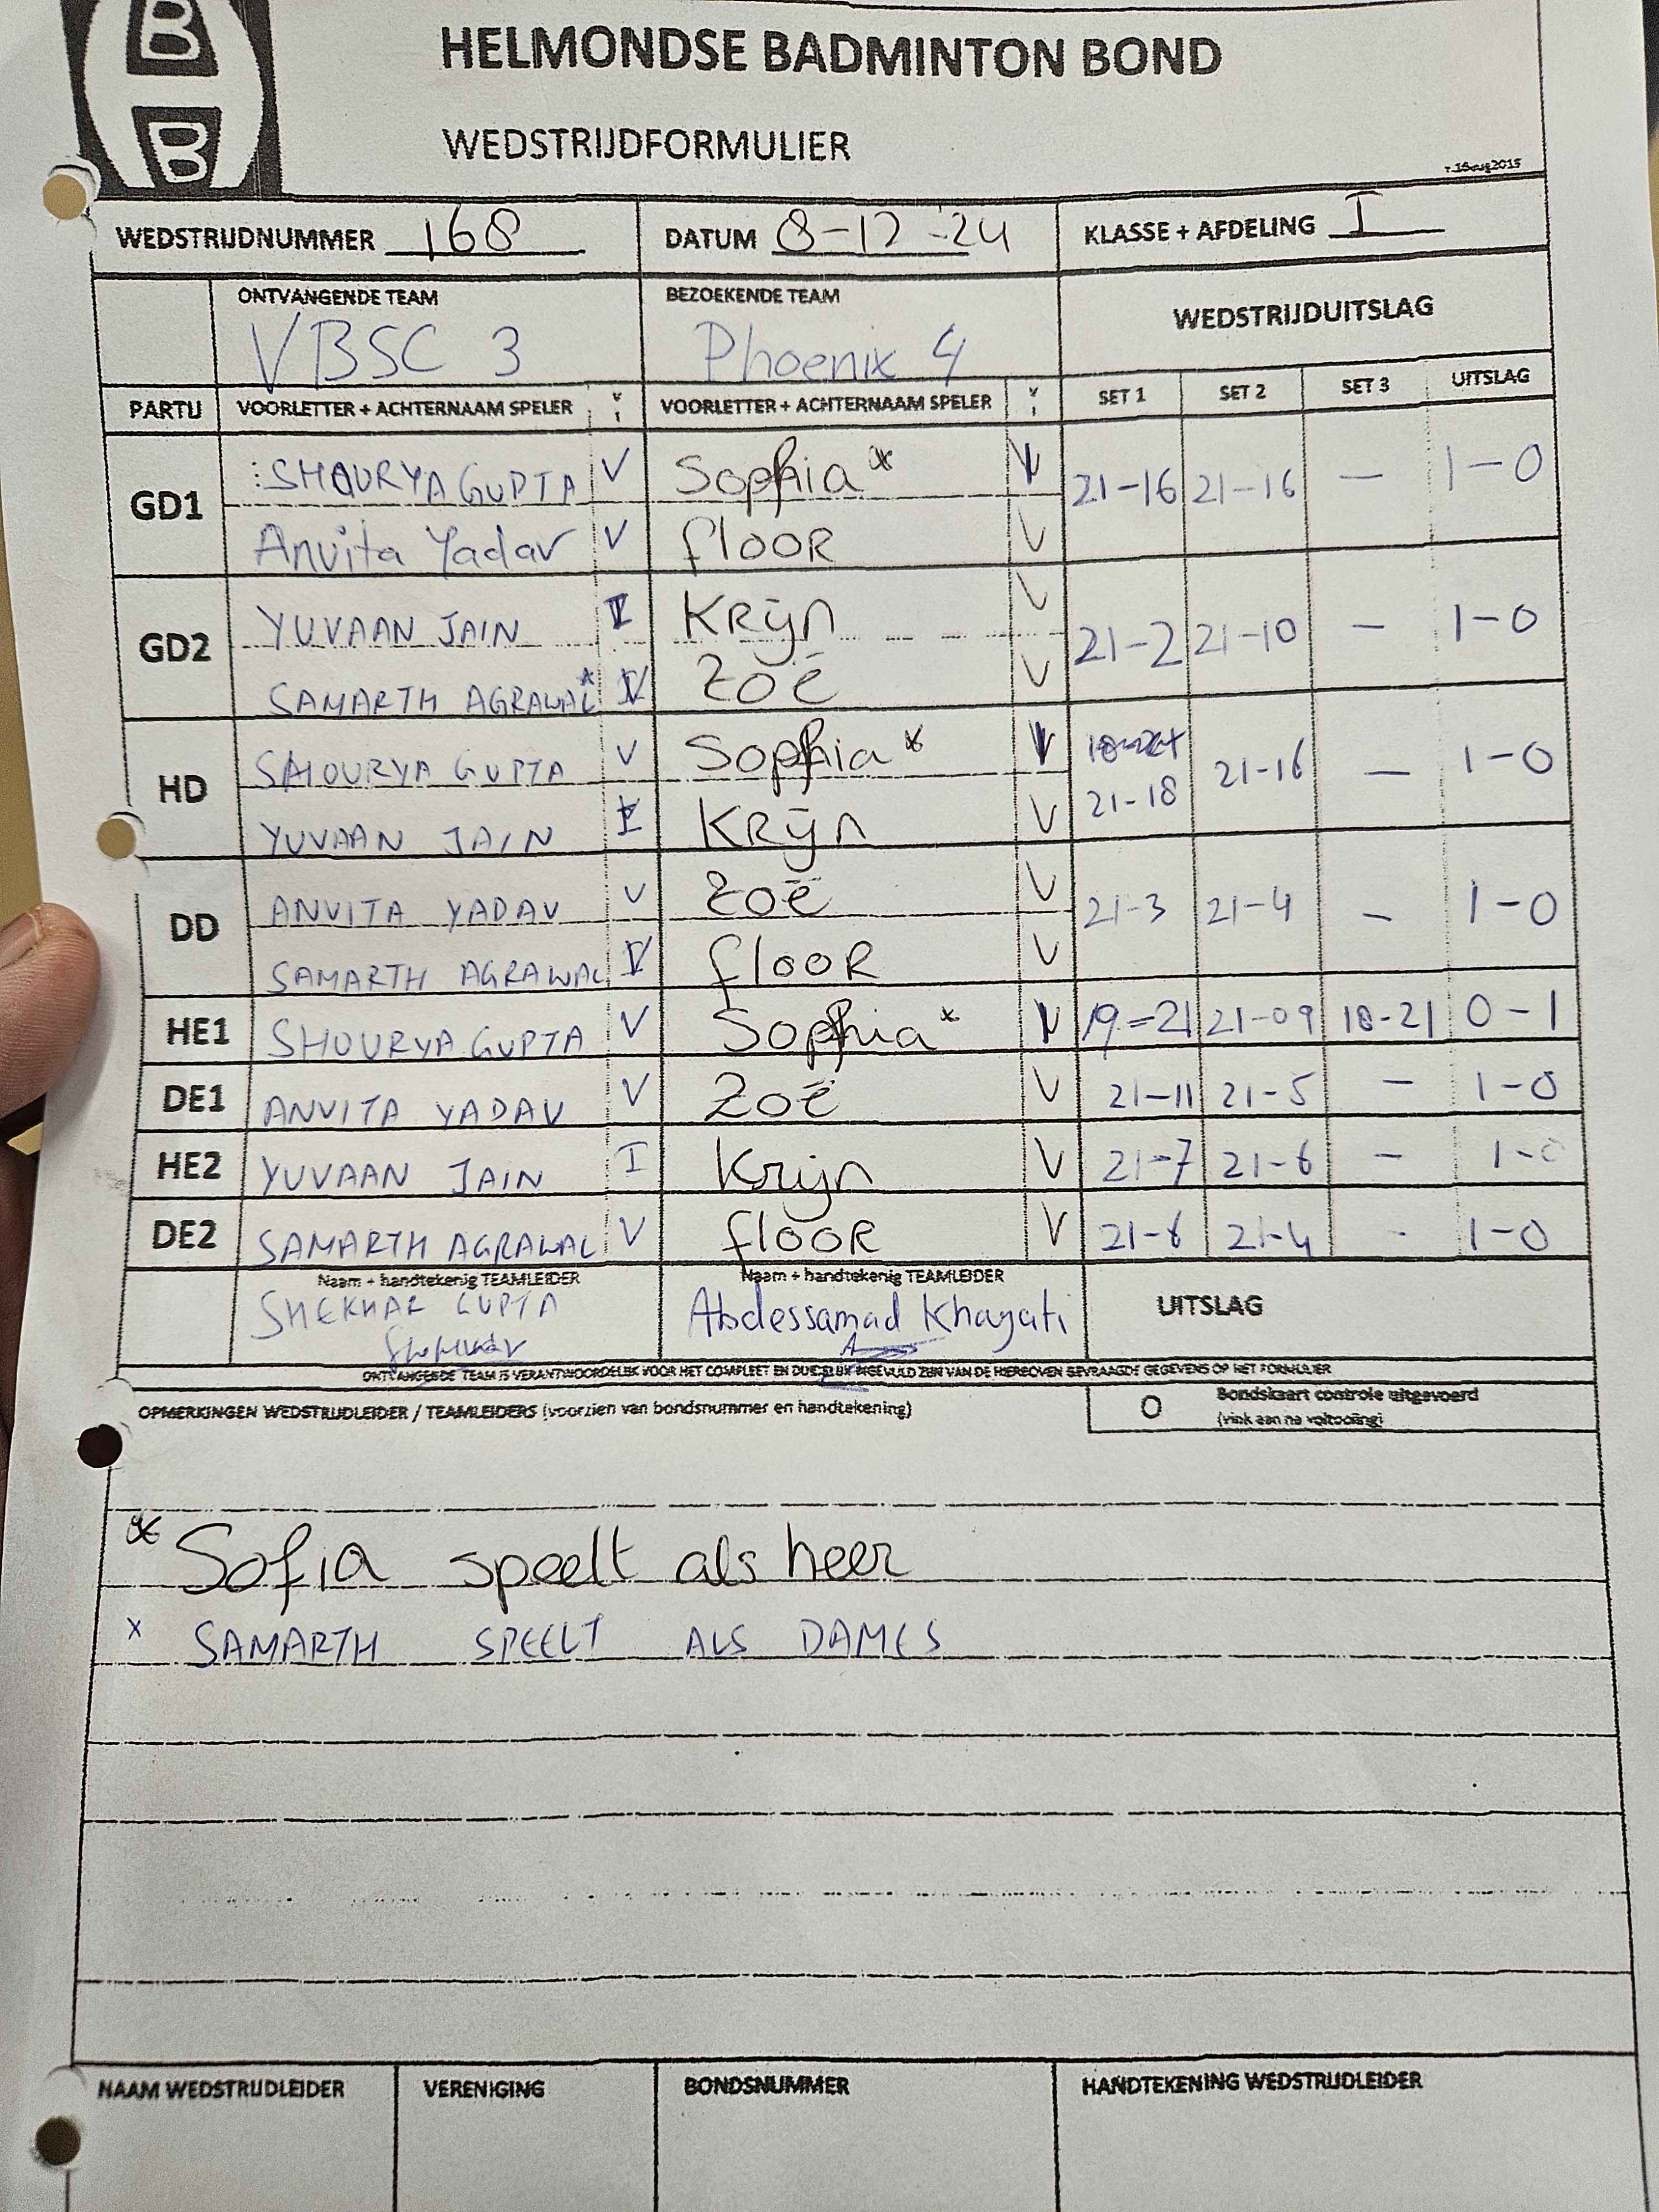 B
B
HELMONDSE BADMINTON BOND
WEDSTRIJDFORMULIER
WEDSTRIJDNUMMER 168 DATUM 8-12-24 KLASSE + AFDELING I
ONTVANGENDE TEAM BEZOEKENDE TEAM WEDSTRIJDUITSLAG
VBSC 3 Phoenix 4
PARTIJ VOORLETTER + ACHTERNAAM SPELER V I VOORLETTER + ACHTERNAAM SPELER V I SET 1 SET 2 SET 3 UITSLAG
GD1 SHOURYA GUPTA V Sophia* V 21-16 21-16 — 1-0
Anvita Yadav V flooR V
GD2 YUVAAN JAIN I KRijn V 21-2 21-10 — 1-0
SAMARTH AGRAWAL* V Zoë V
HD SHOURYA GUPTA V Sophia* V 21-18 21-16 — 1-0
YUVAAN JAIN I KRijn V
DD ANVITA YADAV V Zoë V 21-3 21-4 — 1-0
SAMARTH AGRAWAL V flooR V
HE1 SHOURYA GUPTA V Sophia* V 19-21 21-09 18-21 0-1
DE1 ANVITA YADAV V Zoë V 21-11 21-5 — 1-0
HE2 YUVAAN JAIN I Krijn V 21-7 21-6 — 1-0
DE2 SAMARTH AGRAWAL V flooR V 21-4 - 1-0
Naam + handtekenig TEAMLEIDER Naam + handtekenig TEAMLEIDER UITSLAG
SHEKHAR GUPTA Abdessamad Khayati
ONTVANGENDE TEAM IS VERANTWOORDELIJK VOOR HET COMPLEET EN DUIDELIJK INGEVULD ZIJN VAN DE HIERBOVEN GEVRAAGDE GEGEVENS OP HET FORMULIER
OPMERKINGEN WEDSTRIJDLEIDER / TEAMLEIDERS (voorzien van bondsnummer en handtekening) O Bondskaart controle uitgevoerd
(vink aan na voltooiing)
* Sofia speelt als heer
x SAMARTH SPEELT ALS DAMES
NAAM WEDSTRIJDLEIDER VERENIGING BONDSNUMMER HANDTEKENING WEDSTRIJDLEIDER